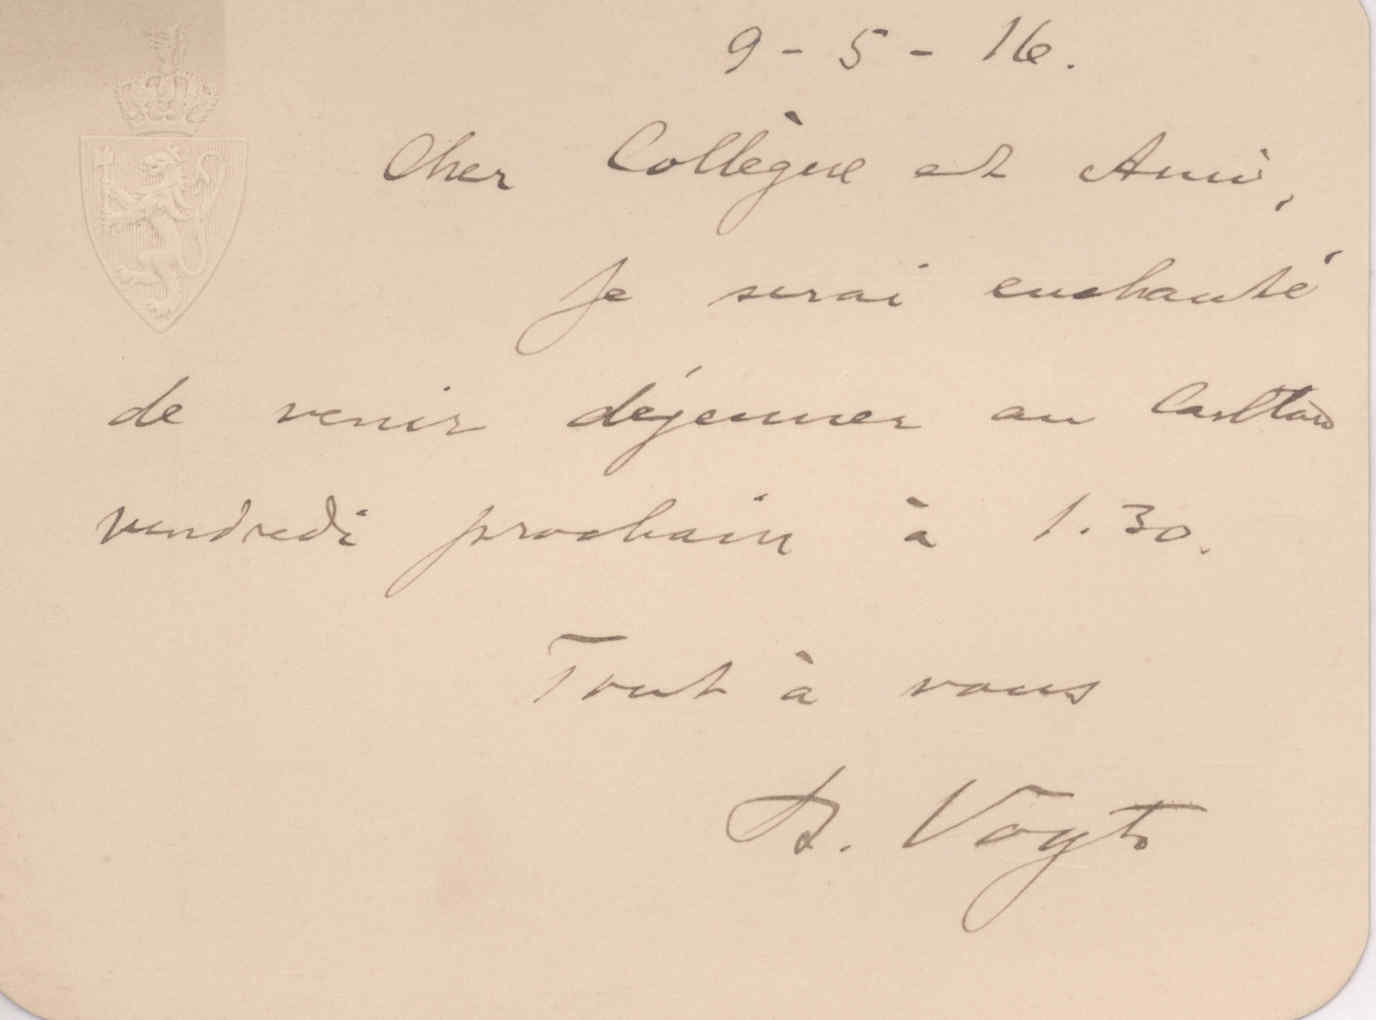 9 - 5 - 16.
Cher Collègue et Ami,
Je serai enchanté
de venir déjeuner au Carlton
vendredi prochain à 1.30.
Tout à vous
B. Vogt